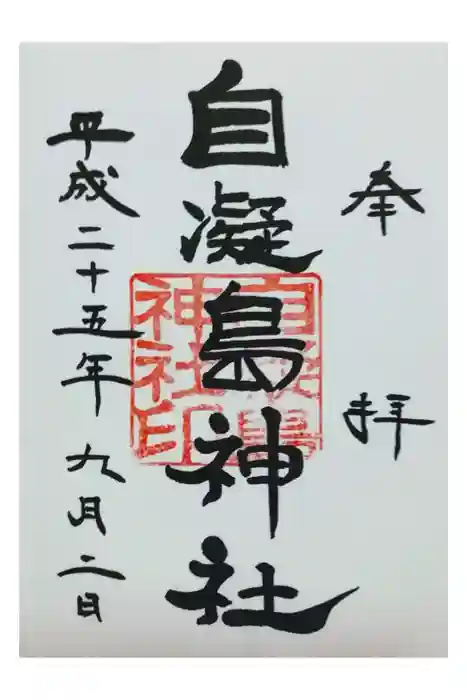 奉拝
自凝島神社
自凝島神社印
平成二十五年九月二日